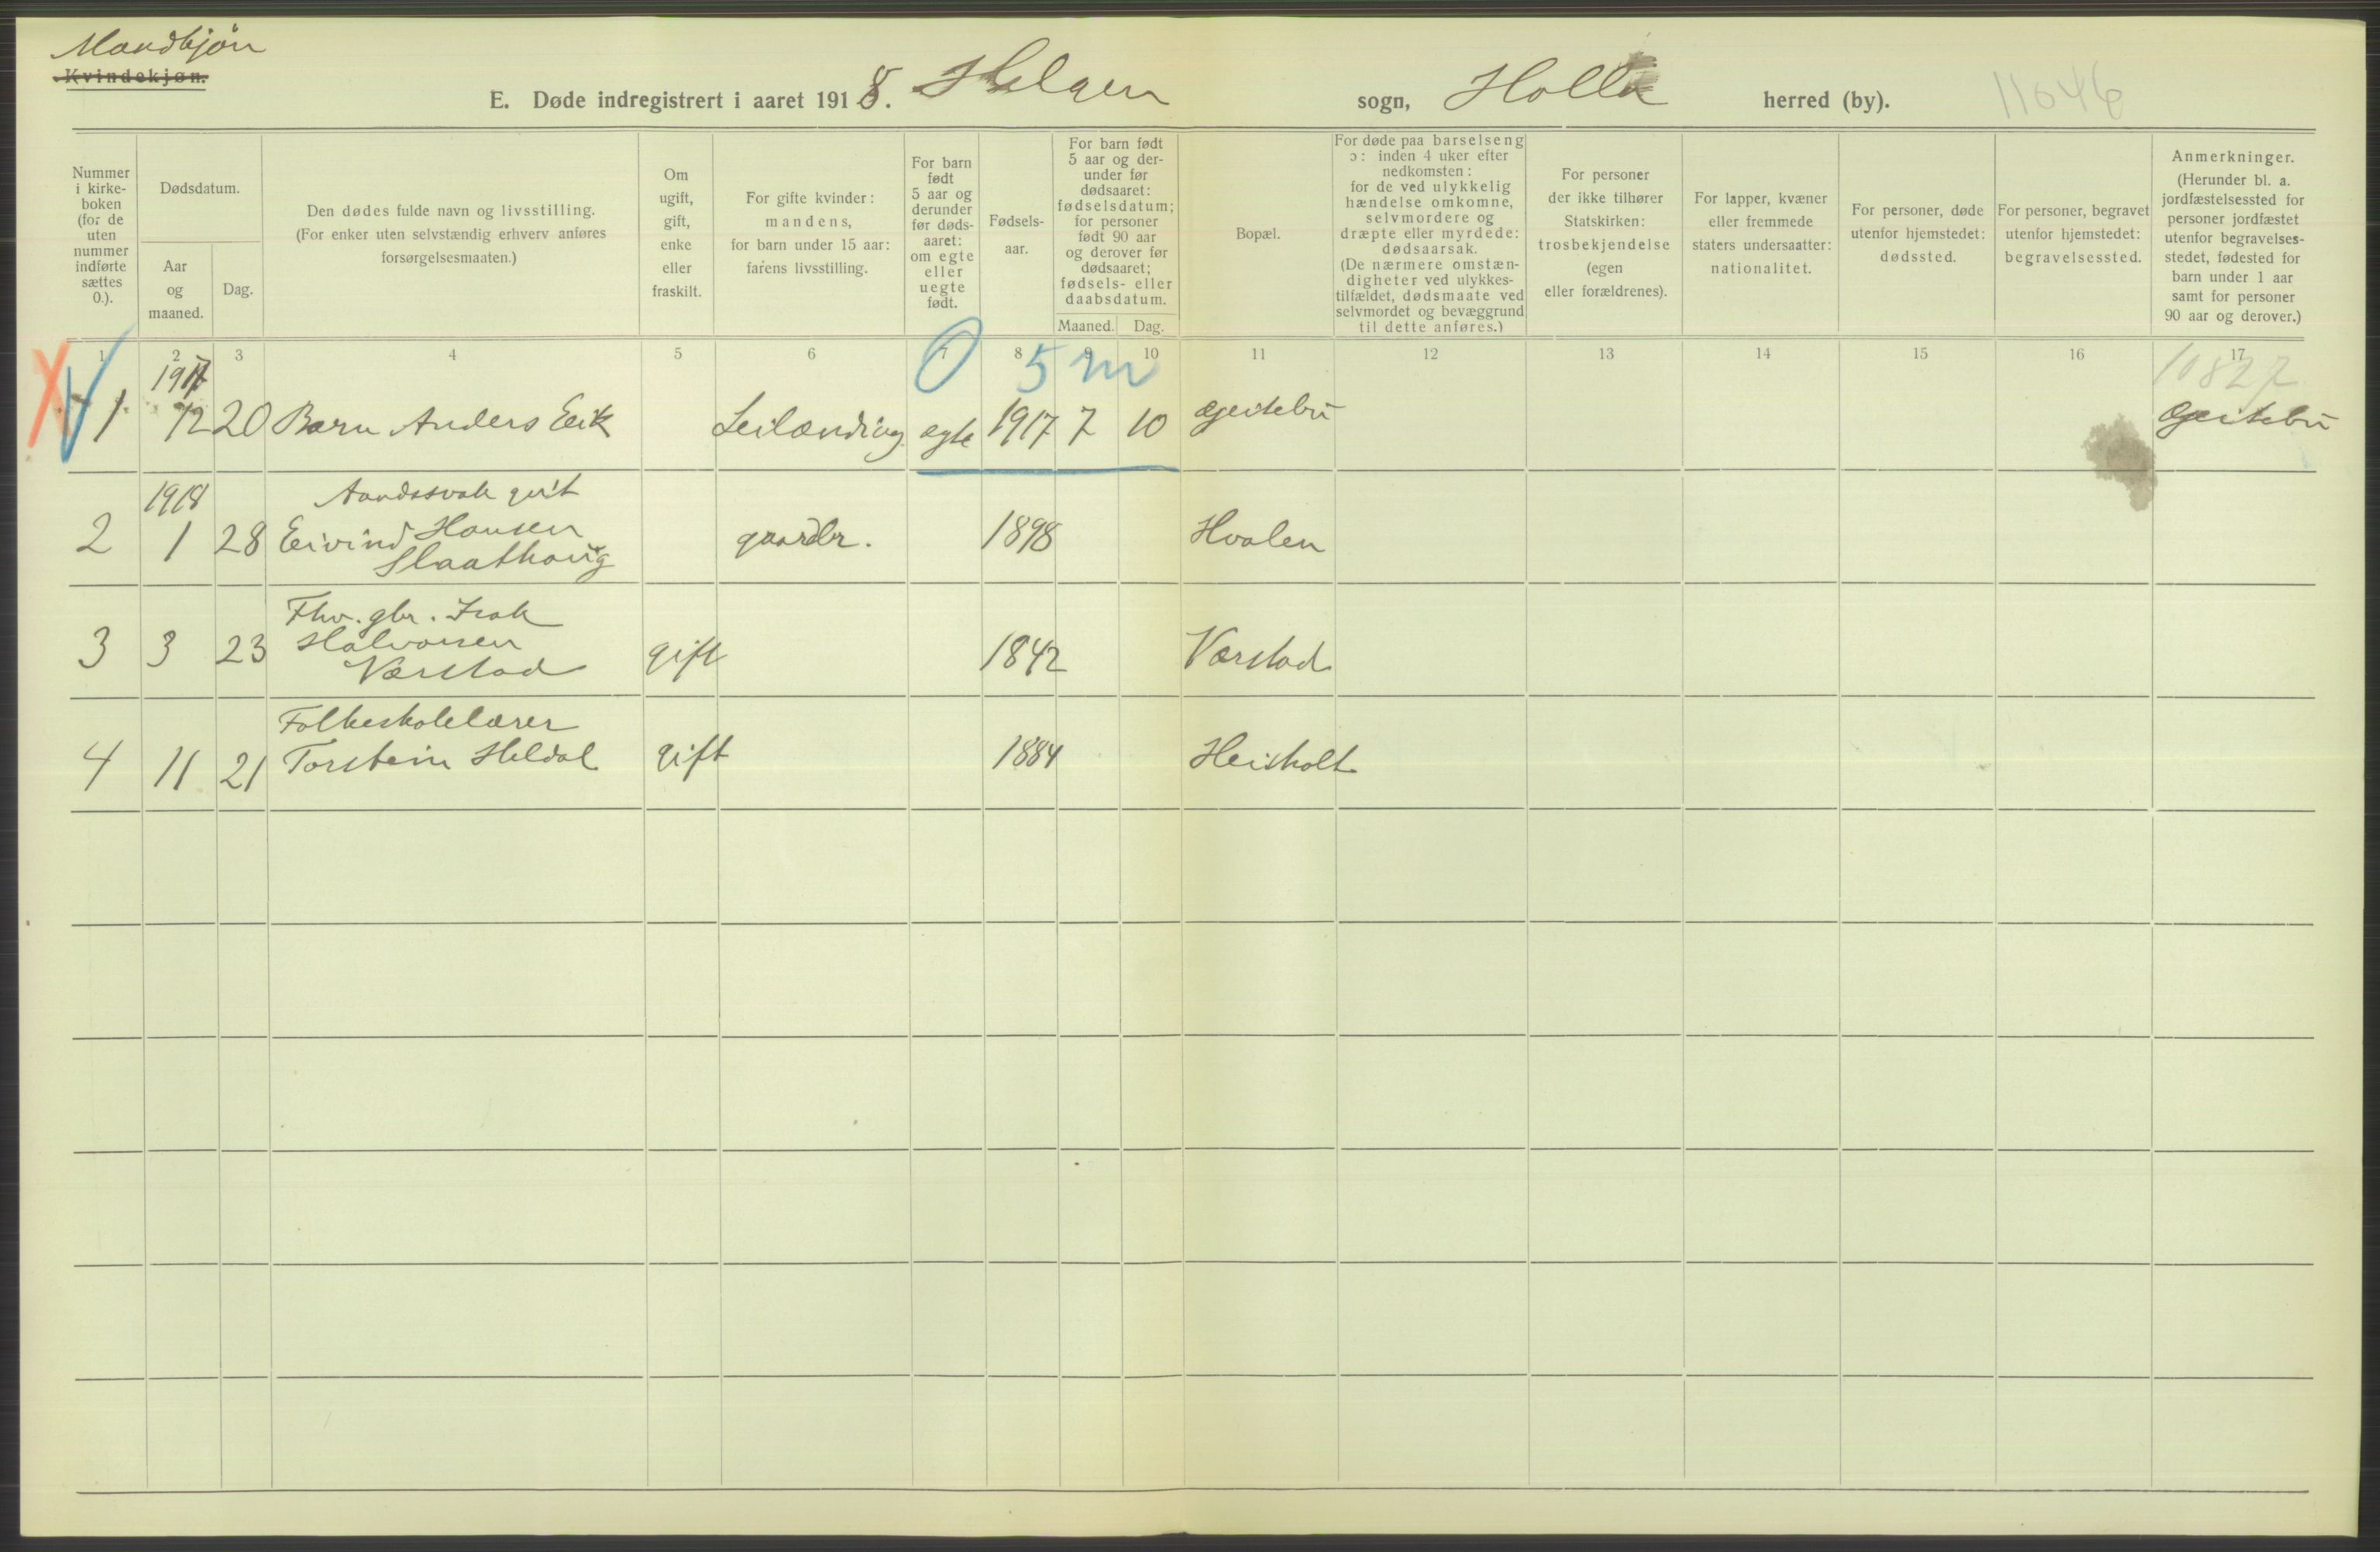 Mandkjøn
Kvindekjøn.
E. Døde indregistrert i aaret 1918. Helgen sogn, Holla herred (by). 11046
Nummer i kirke-boken (for de uten nummer indførte sættes 0.).
Dødsdatum.
Aar og maaned.
Dag.
Den dødes fulde navn og livsstilling.
(For enker uten selvstændig erhverv anføres
forsørgelsesmaaten.)
Om ugift, gift, enke eller fraskilt.
For gifte kvinder: mandens, for barn under 15 aar: farens livsstilling.
For barn født 5 aar og derunder før døds-aaret: om egte eller uegte født.
Fødsels-aar.
For barn født 5 aar og der-under før dødsaaret: fødselsdatum; for personer født 90 aar og derover før dødsaaret; fødsels- eller daabsdatum.
Maaned. Dag.
Bopæl.
For døde paa barselseng ɔ: inden 4 uker efter nedkomsten: for de ved ulykkelig hændelse omkomne, selvmordere og dræpte eller myrdede: dødsaarsak. (De nærmere omstæn-digheter ved ulykkes-tilfældet, dødsmaate ved selvmordet og bevæggrund til dette anføres.)
For personer der ikke tilhører Statskirken: trosbekjendelse (egen eller forældrenes).
For lapper, kvæner eller fremmede staters undersaatter: nationalitet.
For personer, døde utenfor hjemstedet: dødssted.
For personer, begravet utenfor hjemstedet: begravelsessted.
Anmerkninger. (Herunder bl. a. jordfæstelsessted for personer jordfæstet utenfor begravelses-stedet, fødested for barn under 1 aar samt for personer 90 aar og derover.)
1 2 3 4 5 6 7 8 9 10 11 12 13 14 15 16 17
0 5 m 10827
1917
1 12 20 Barn Anders Eik Leilænding egte 1917 7 10 Gjeitebu Gjeitebu
1918 Aandssvak gut
2 1 28 Eivind Hansen gaardbr. 1898 Hvalen
Slaathaug
Fhv. gbr. Isak
3 3 23 Halvorsen gift 1842 Værstad
Værstad
Folkeskolelærer
4 11 21 Torstein Heldal gift 1884 Heisholt